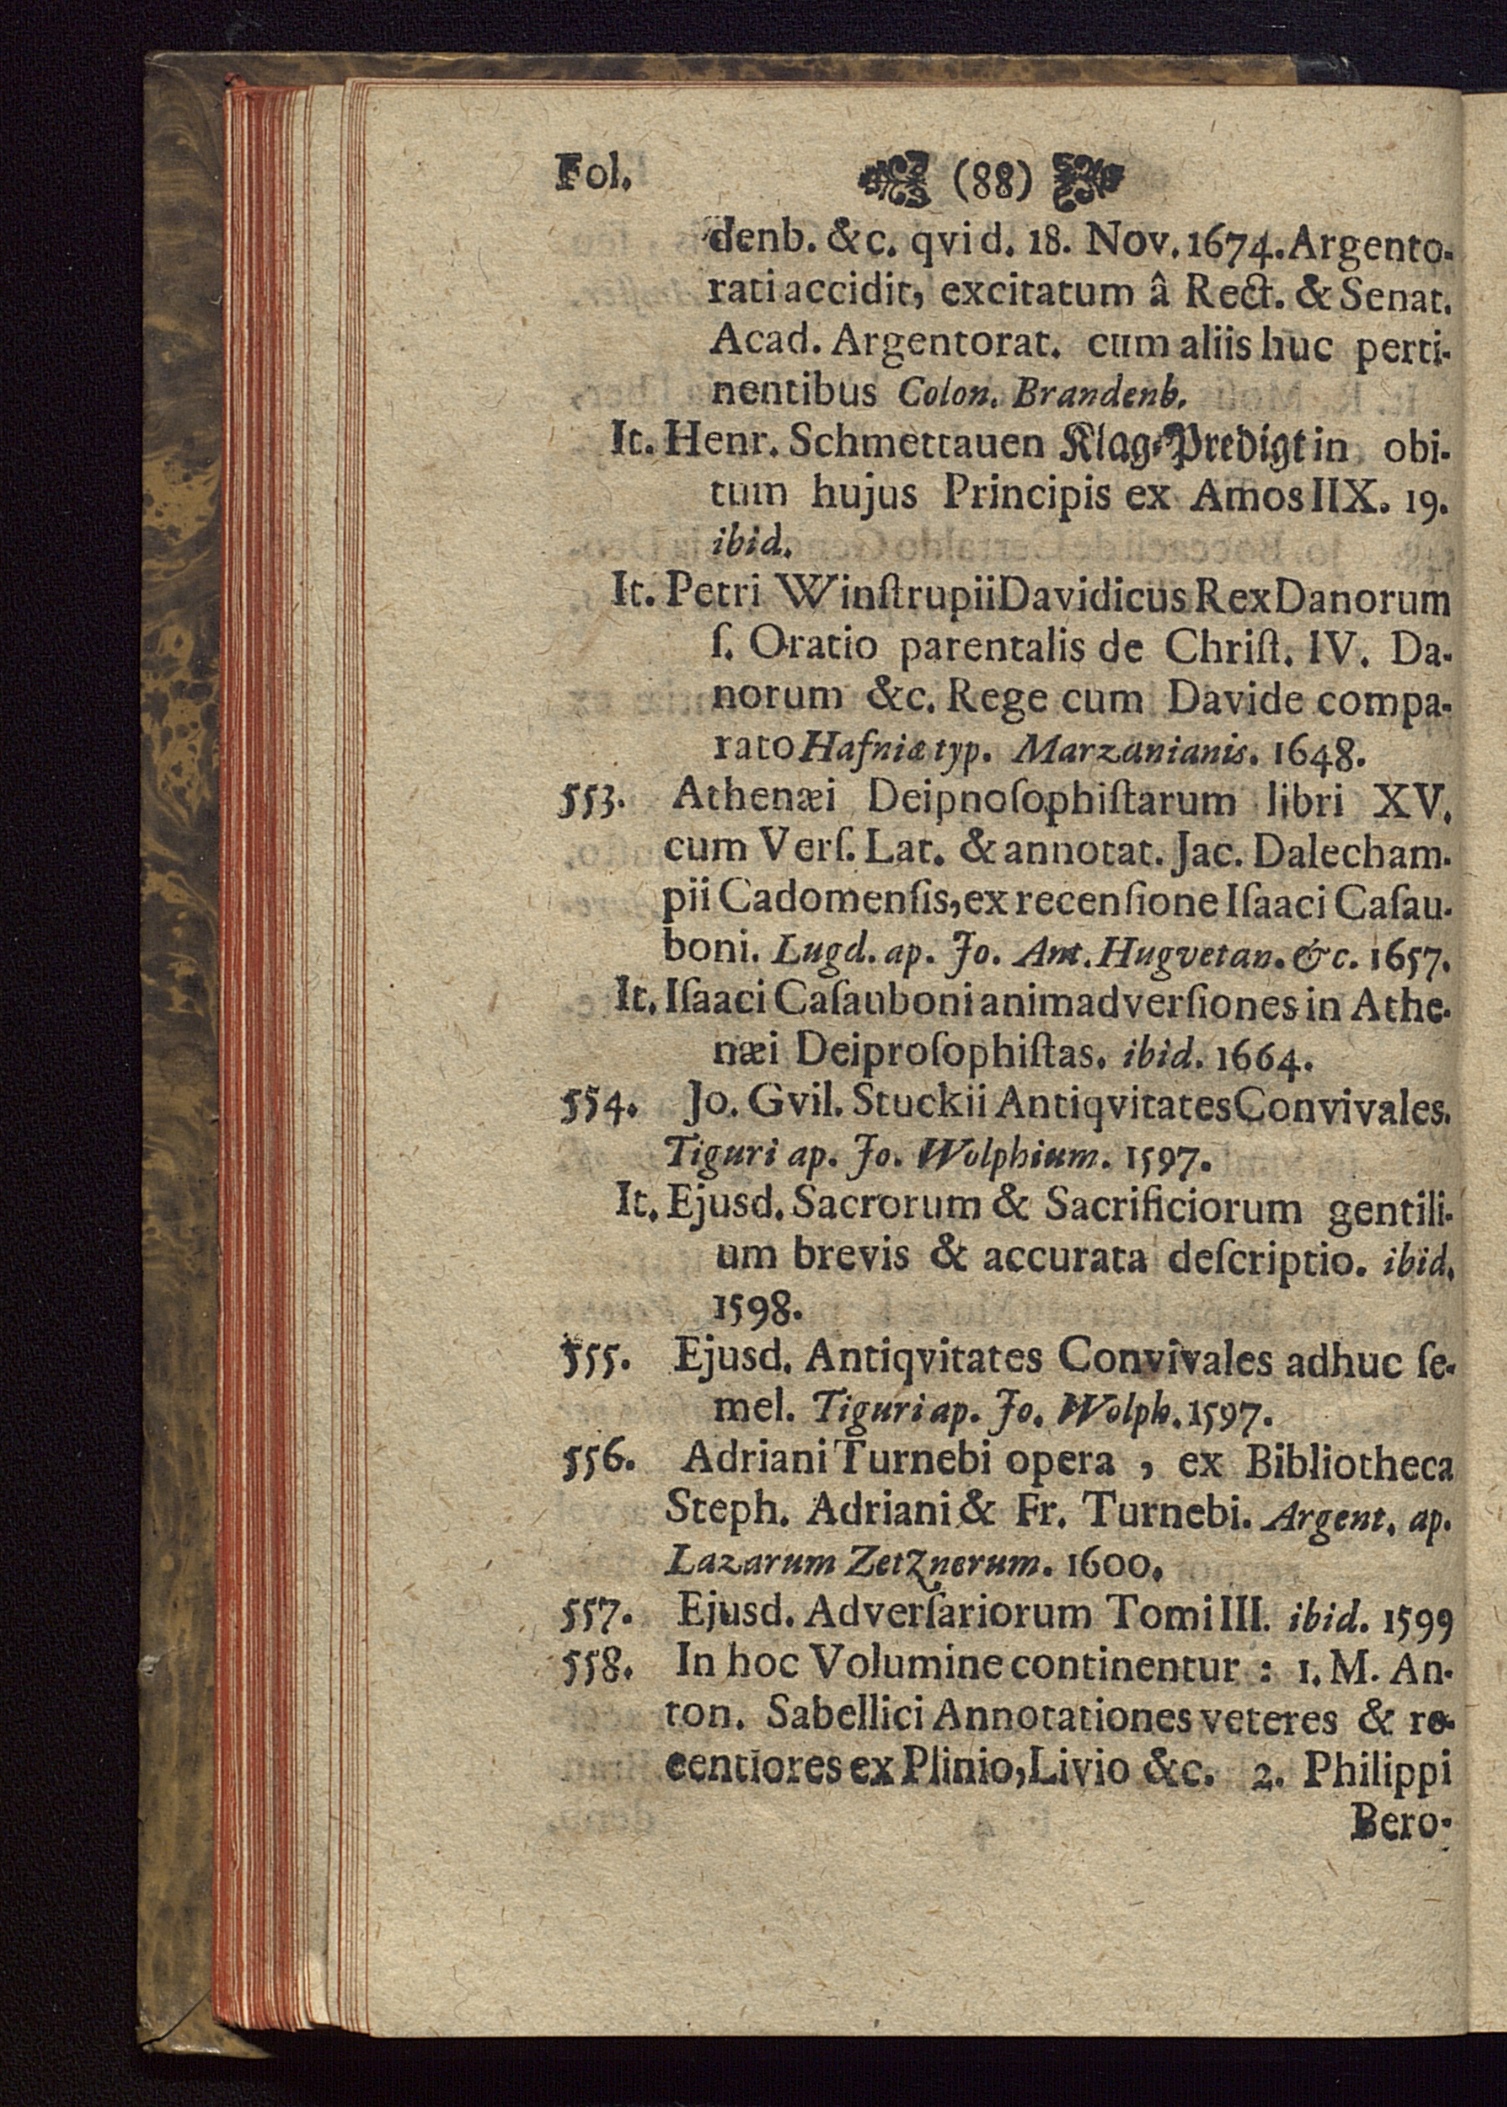 Fol. (88)
denb. &c. qvi d. 18. Nov. 1674. Argento-
rati accidit, excitatum â Rect. & Senat.
Acad. Argentorat. cum aliis huc perti-
nentibus Colon. Brandenb.
It. Henr. Schmettauen Klag-Predigt in obi-
tum hujus Principis ex Amos IIX. 19.
ibid.
It. Petri Winſtrupii Davidicus Rex Danorum
ſ. Oratio parentalis de Chriſt. IV. Da-
norum &c. Rege cum Davide compa-
rato Hafniæ typ. Marzanianis. 1648.
553. Athenæi Deipnoſophiſtarum libri XV.
cum Verſ. Lat. & annotat. Jac. Dalecham-
pii Cadomenſis, ex recenſione Iſaaci Caſau-
boni. Lugd. ap. Jo. Ant. Hugvetan. &c. 1657.
It. Iſaaci Caſauboni animadverſiones in Athe-
næi Deiproſophiſtas. ibid. 1664.
554. Jo. Gvil. Stuckii Antiqvitates Convivales.
Tiguri ap. Jo. Wolphium. 1597.
It. Ejusd. Sacrorum & Sacrificiorum gentili-
um brevis & accurata deſcriptio. ibid.
1598.
555. Ejusd. Antiqvitates Convivales adhuc ſe-
mel. Tiguri ap. Jo. Wolph. 1597.
556. Adriani Turnebi opera, ex Bibliotheca
Steph. Adriani & Fr. Turnebi. Argent. ap.
Lazarum Zetznerum. 1600.
557. Ejusd. Adverſariorum Tomi III. ibid. 1599
558. In hoc Volumine continentur: 1. M. An-
ton. Sabellici Annotationes veteres & re-
centiores ex Plinio, Livio &c. 2. Philippi
Bero-